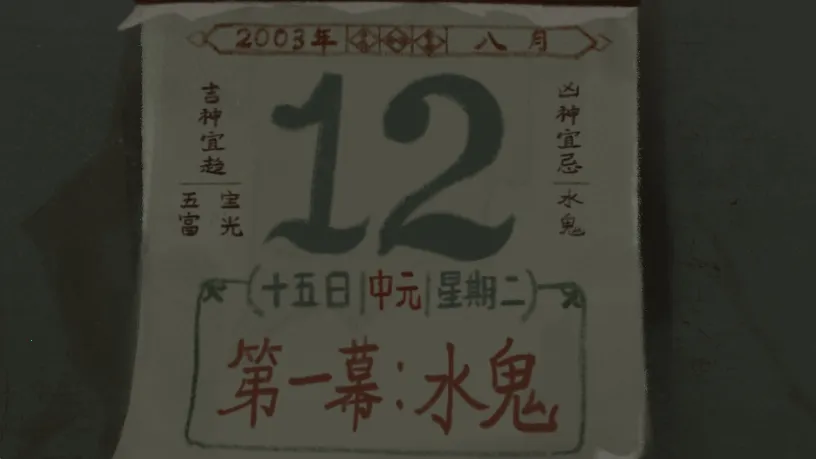 2003年 八月
吉神宜趋
五富
宝光
12
凶神宜忌
水鬼
(十五日|中元|星期二)
第一幕:水鬼